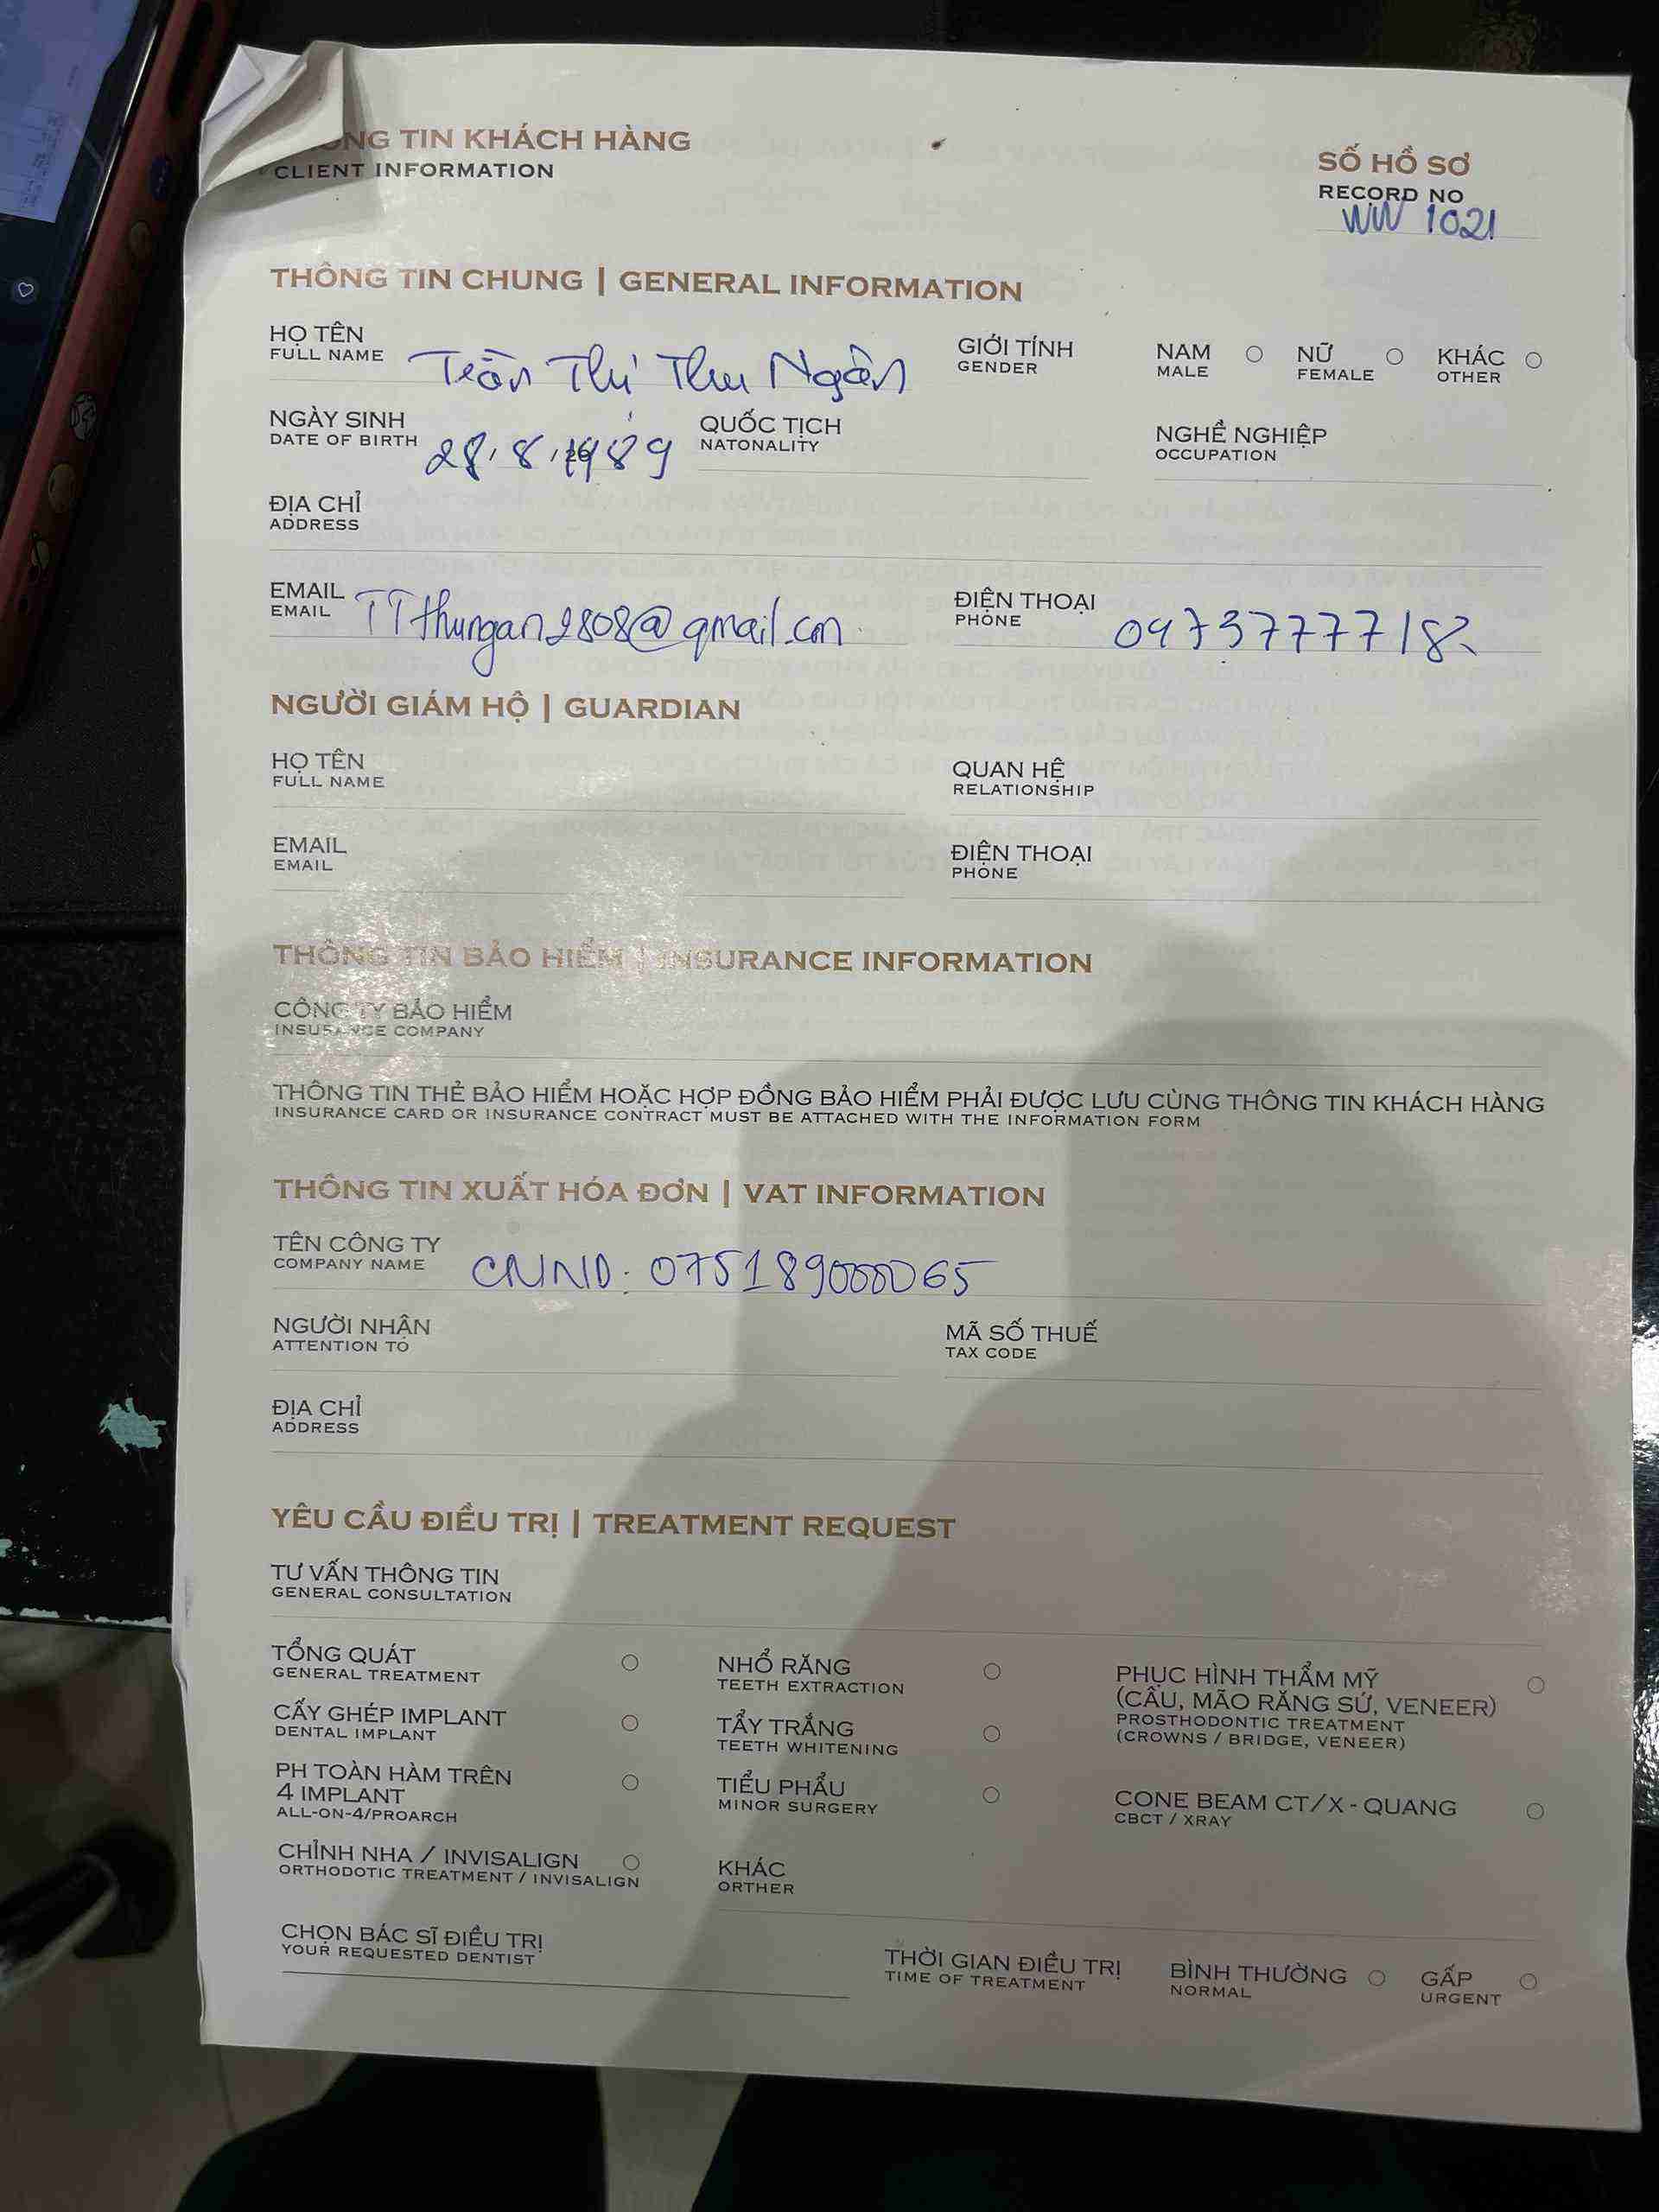 NG TIN KHÁCH HÀNG
CLIENT INFORMATION
SỐ HỒ SƠ
RECORD NO
WW 1021
THÔNG TIN CHUNG | GENERAL INFORMATION
HỌ TÊN
FULL NAME
Trần Thị Thu Ngân
GIỚI TÍNH
GENDER
NAM
MALE
NỮ
FEMALE
KHÁC
OTHER
NGÀY SINH
DATE OF BIRTH
28.8.1989
QUỐC TỊCH
NATONALITY
NGHỀ NGHIỆP
OCCUPATION
ĐỊA CHỈ
ADDRESS
EMAIL
EMAIL
TTthungan2808@gmail.com
ĐIỆN THOẠI
PHONE
NGƯỜI GIÁM HỘ | GUARDIAN
HỌ TÊN
FULL NAME
QUAN HỆ
RELATIONSHIP
EMAIL
EMAIL
ĐIỆN THOẠI
PHONE
THÔNG TIN BẢO HIỂM | INSURANCE INFORMATION
CÔNG TY BẢO HIỂM
INSURANCE COMPANY
THÔNG TIN THẺ BẢO HIỂM HOẶC HỢP ĐỒNG BẢO HIỂM PHẢI ĐƯỢC LƯU CÙNG THÔNG TIN KHÁCH HÀNG
INSURANCE CARD OR INSURANCE CONTRACT MUST BE ATTACHED WITH THE INFORMATION FORM
THÔNG TIN XUẤT HÓA ĐƠN | VAT INFORMATION
TÊN CÔNG TY
COMPANY NAME
CMND: 075189000065
NGƯỜI NHẬN
ATTENTION TO
MÃ SỐ THUẾ
TAX CODE
ĐỊA CHỈ
ADDRESS
YÊU CẦU ĐIỀU TRỊ | TREATMENT REQUEST
TƯ VẤN THÔNG TIN
GENERAL CONSULTATION
TỔNG QUÁT
GENERAL TREATMENT
NHỔ RĂNG
TEETH EXTRACTION
PHỤC HÌNH THẨM MỸ
(CẦU, MÃO RĂNG SỨ, VENEER)
PROSTHODONTIC TREATMENT
(CROWNS / BRIDGE, VENEER)
CẤY GHÉP IMPLANT
DENTAL IMPLANT
TẨY TRẮNG
TEETH WHITENING
PH TOÀN HÀM TRÊN
4 IMPLANT
ALL-ON-4/PROARCH
TIỂU PHẪU
MINOR SURGERY
CONE BEAM CT/X - QUANG
CBCT / XRAY
CHỈNH NHA / INVISALIGN
ORTHODOTIC TREATMENT / INVISALIGN
KHÁC
ORTHER
CHỌN BÁC SĨ ĐIỀU TRỊ
YOUR REQUESTED DENTIST
THỜI GIAN ĐIỀU TRỊ
TIME OF TREATMENT
BÌNH THƯỜNG
NORMAL
GẤP
URGENT